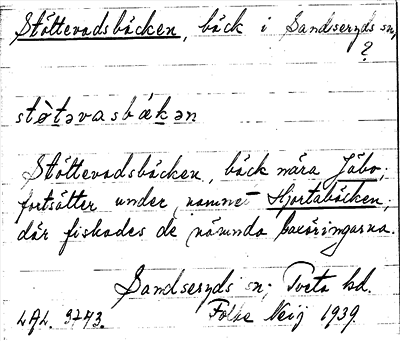 Stöttevadsbäcken, bäck i Sandseryds sn,
?
stø̀təvasbækən
Stöttevadsbäcken, bäck nära Jäbo;
fortsätter under namnet Hjortabäcken,
där fiskades de nämnda
Sandseryds sn; Tveta hd.
LAL. 3743. Folke Neij 1939.